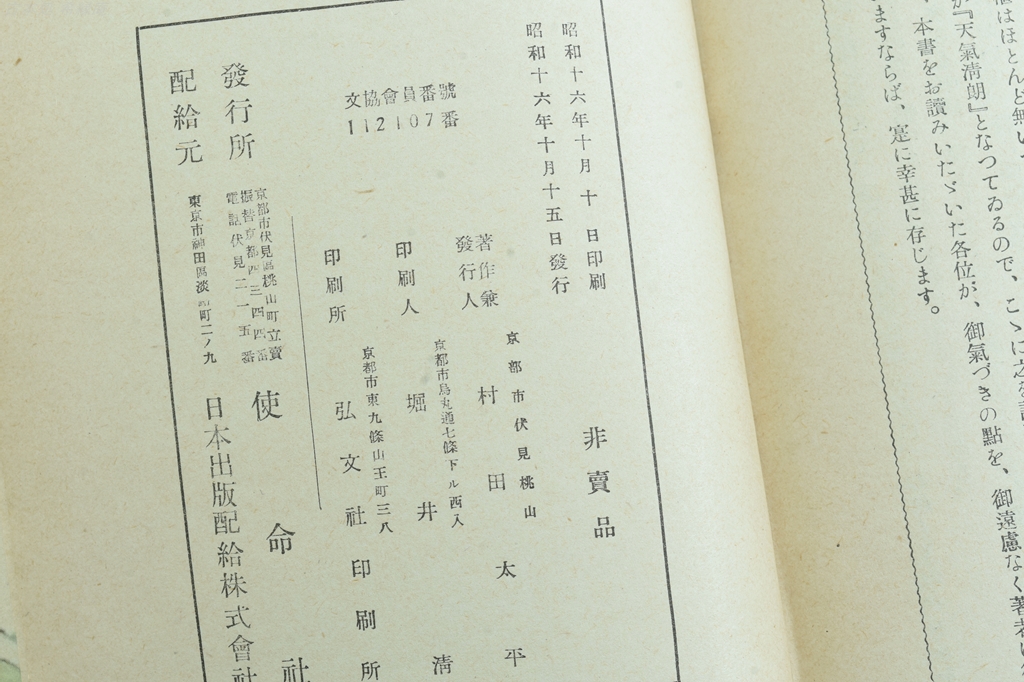 はほとんど無い
『天氣淸朗』となつてゐるので、こゝに之を
本書をお讀みいたゞいた各位が、御氣づきの點を、御遠慮なく著者
ますならば、寔に幸甚に存じます。
昭和十六年十月十日印刷
昭和十六年十月十五日發行
非賣品
文協會員番號
112107番
著作兼
發行人
京都市伏見桃山
村田太平
印刷人
京都市烏丸通七條下ル西入
堀井淸
印刷所
京都市東九條山王町三八
弘文社印刷所
發行所
京都市伏見區桃山町立賣
振替京都四三四四番
電話伏見二一五番
使命社
配給元
東京市神田區淡町二ノ九
日本出版配給株式會社